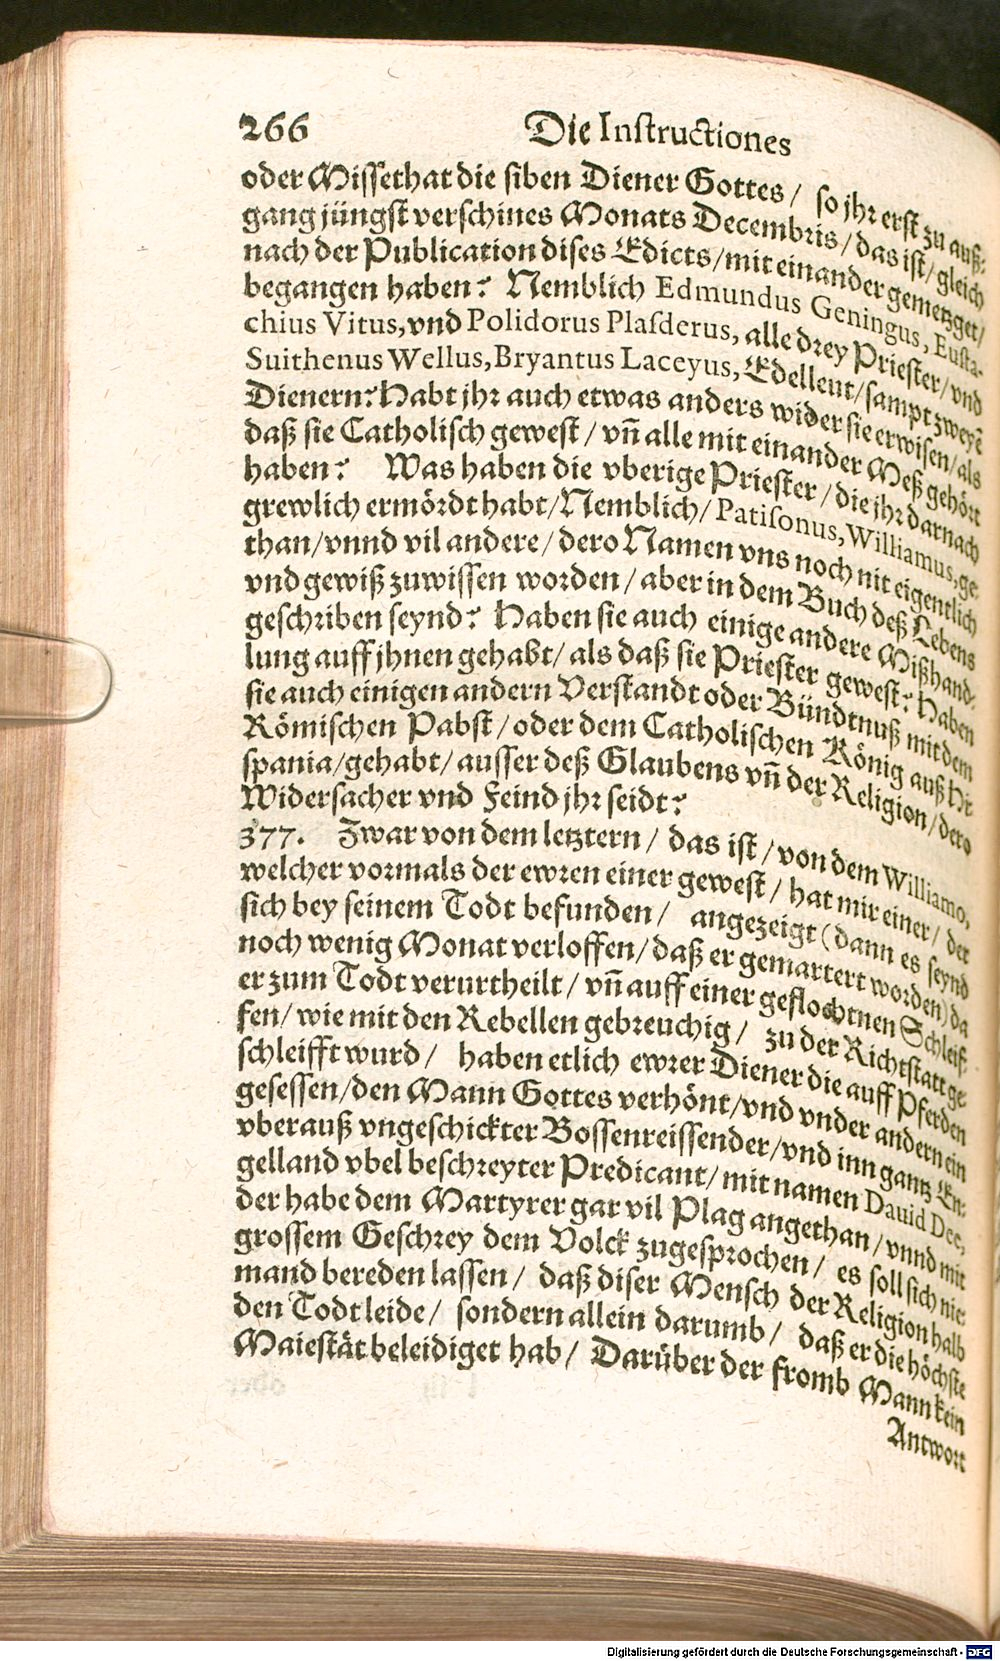 266 Die Instructiones
oder Missethat die siben Diener Gottes / so jhr erst zu auß-
gang jüngst verschines Monats Decembris / das ist / gleich
nach der Publication dises Edicts / mit einander gemetzget /
begangen haben? Nemblich Edmundus Geningus, Eusta-
chius Vitus, vnd Polidorus Plasderus, alle drey Priester / vnd
Suithenus Wellus, Bryantus Laceyus, Edelleut / sampt zweyẽ
Dienern? Habt jhr auch etwas anders wider sie erwisen / als
daß sie Catholisch gewest / vñ alle mit einander Meß gehört
haben? Was haben die vberige Priester / die jhr darnach
grewlich ermördt habt / Nemblich / Patisonus, Williamus, ge-
than / vnnd vil andere / dero Namen vns noch nit eigentlich
vnd gewiß zuwissen worden / aber in dem Buch deß Lebens
geschriben seynd? Haben sie auch einige andere Mißhand-
lung auff jhnen gehabt / als daß sie Priester gewest? Haben
sie auch einigen andern Verstandt oder Bündtnuß mit dem
Römischen Pabst / oder dem Catholischen König auß Hi-
spania / gehabt / ausser deß Glaubens vñ der Religion / dero
Widersacher vnd Feind jhr seidt?
377. Zwar von dem letztern / das ist / von dem Williamo,
welcher vormals der ewren einer gewest / hat mir einer / der
sich bey seinem Todt befunden / angezeigt (dann es seynd
noch wenig Monat verloffen / daß er gemartert worden) da
er zum Todt verurtheilt / vñ auff einer geflochtnen Schleif-
fen / wie mit den Rebellen gebreuchig / zu der Richtstatt ge-
schleifft wurd / haben etlich ewrer Diener die auff Pferden
gesessen / den Mann Gottes verhönt / vnd vnder andern ein
vberauß vngeschickter Bossenreissender / vnd inn gantz En-
gelland vbel beschreyter Predicant / mit namen Dauid Dee,
der habe dem Martyrer gar vil Plag angethan / vnnd mit
grossem Geschrey dem Volck zugesprochen / es soll sich nie-
mand bereden lassen / daß diser Mensch der Religion halb
den Todt leide / sondern allein darumb / daß er die höchste
Maiestät beleidiget hab / Darüber der fromb Mann kein
Antwort
Digitalisierung gefördert durch die Deutsche Forschungsgemeinschaft - DFG